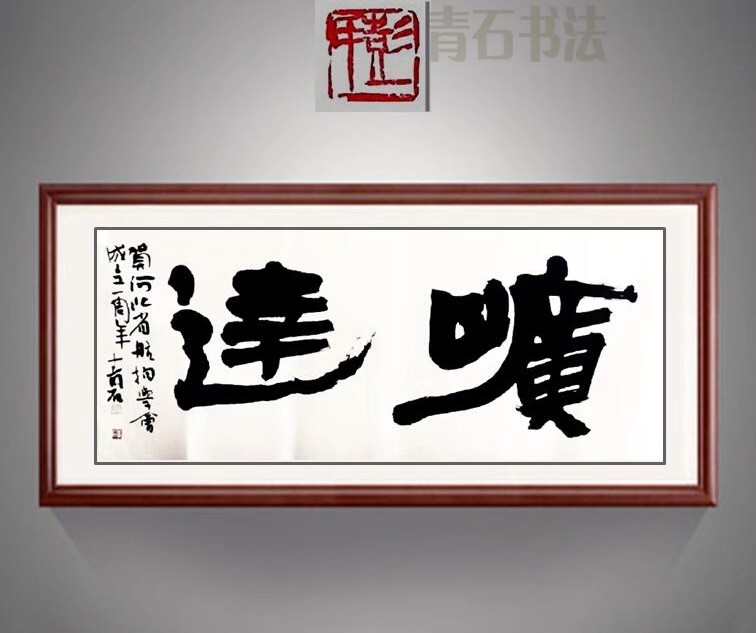 青石书法
曠達
賀河北省航拍學會
成立一周年 青石